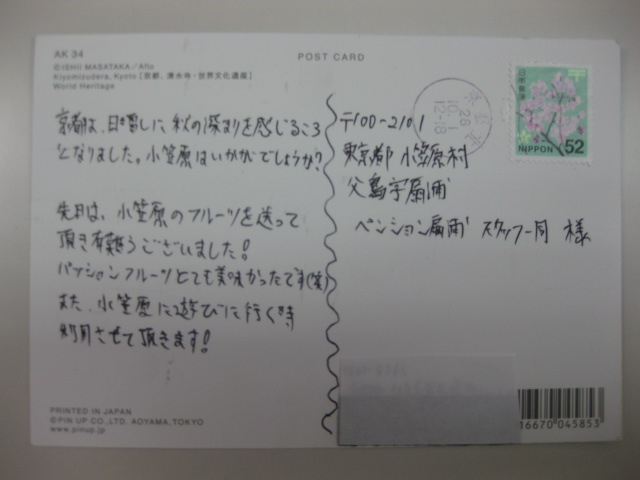 AK 34
©ISHII MASATAKA/Aflo
Kiyomizudera, Kyoto [京都、清水寺・世界文化遺産]
World Heritage
POST CARD
28
10.1
12-18
日本郵便
NIPPON 52
京都は、日増しに秋の深まりを感じるころ
となりました。小笠原はいかがでしょうか?
先日は、小笠原のフルーツを送って
頂き有難うございました!
パッションフルーツとても美味かったです(笑)
また、小笠原に遊びに行く時
利用させて頂きます!
〒100-2101
東京都小笠原村
父島字扇浦
ペンション扇浦 スタッフ一同 様
PRINTED IN JAPAN
©PIN UP CO.,LTD. AOYAMA,TOKYO
www.pinup.jp
16670 045853